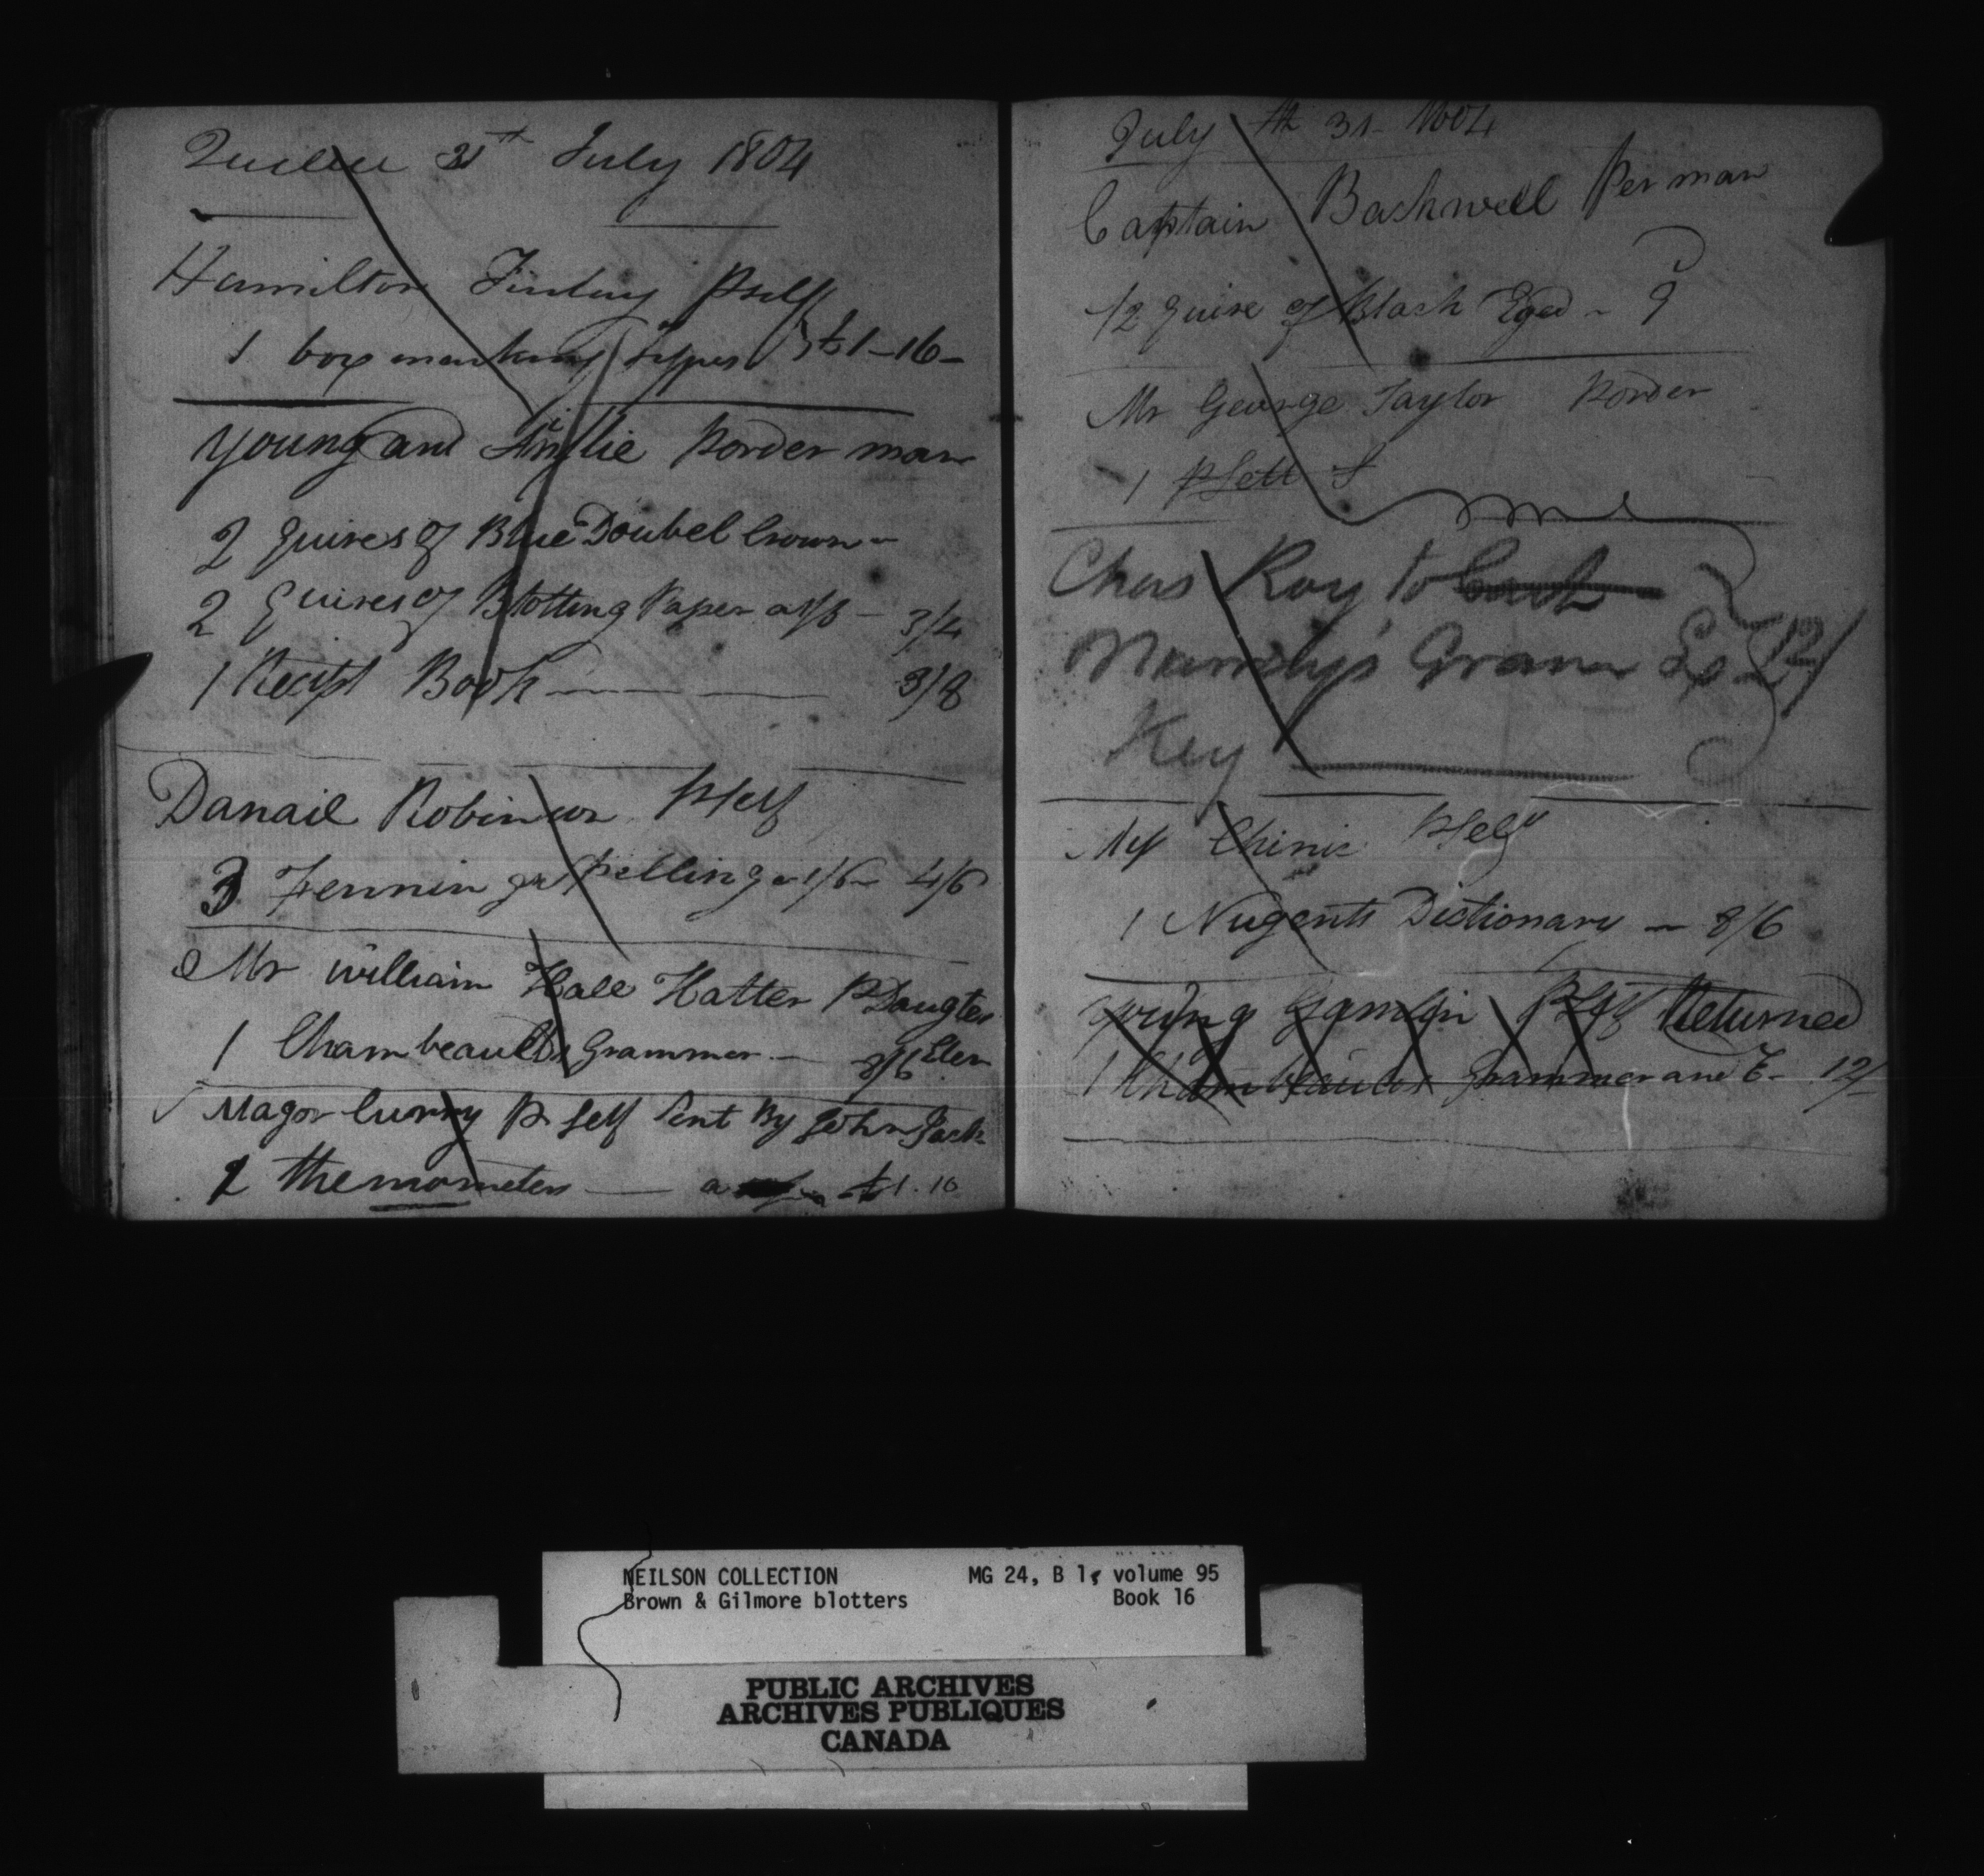 Quebec 31th July 1804
Hamilton Finlay Pself
1 box marking types £1-16-
Young and Ainslie Porder man
2 Quires of Blue Doubel Crown -
2 Quires of Blotting Paper a 1/8 - 3/4
1 Recipt Book 3/8
Danail Robinson Pself
3 Fennings Spelling a 1/6 - 4/6
Mr William Hall Hatter P Daugter
1 Chambeauds Grammer - 8/6
Magor Curry P Self Sent By John Jack
2 themometers a £1.10
July th 31 - 1804
Captain Bashwell Per man
1/2 quire of Black Eged - 9
Mr George Taylor Porder
1 PSett S
Chas Roy to Cash
Key
Chinic PSelf
1 Nugents Dictionary - 8/6
Young PSelf Returned
1 Chambeauds Grammer and E - 12/
NEILSON COLLECTION MG 24, B 1, volume 95
Brown & Gilmore blotters Book 16
PUBLIC ARCHIVES
ARCHIVES PUBLIQUES
CANADA